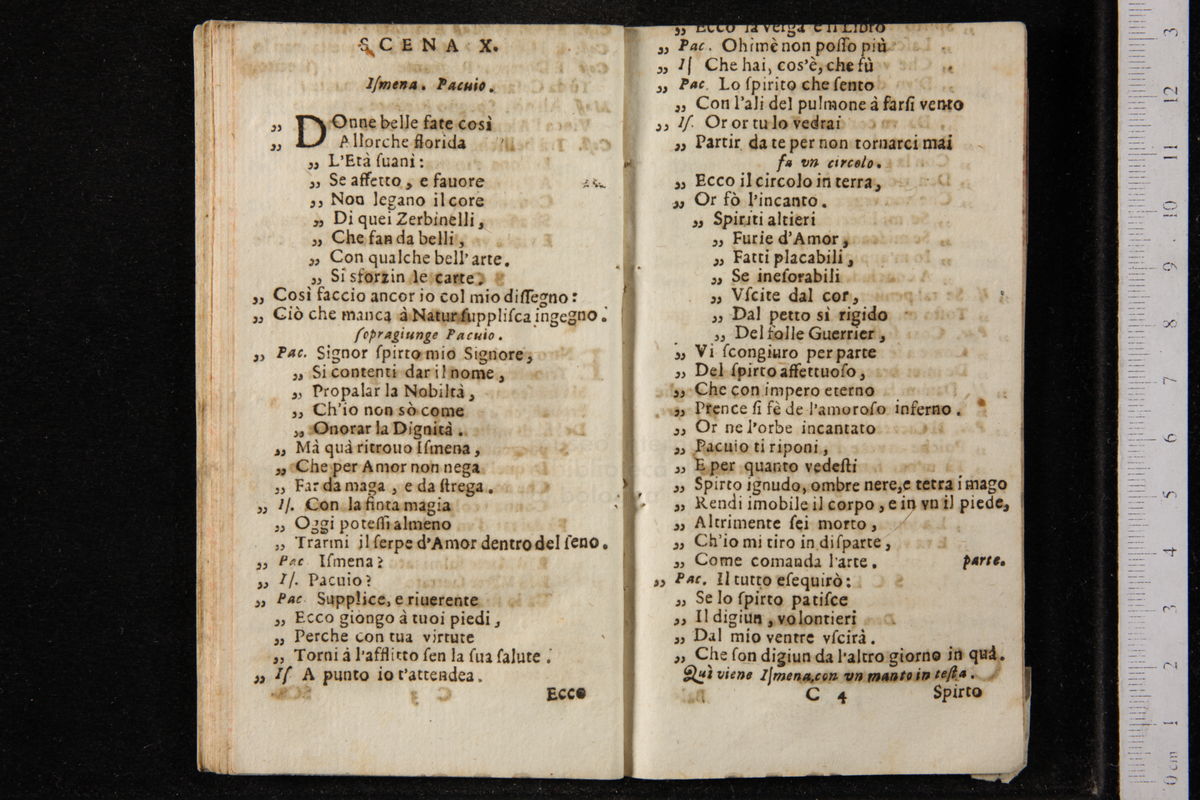 SCENA X.
Iſmena. Pacuio.
„ DOnne belle fate così
„ Allorche florida
„ L'Età ſuanì:
„ Se affetto, e fauore
„ Non legano il core
„ Di quei Zerbinelli,
„ Che fan da belli,
„ Con qualche bell'arte.
„ Si sforzin le carte.
„ Così faccio ancor io col mio diſſegno:
„ Ciò che manca à Natur ſuppliſca ingegno.
ſopragiunge Pacuio.
„ Pac. Signor ſpirto mio Signore,
„ Si contenti dar il nome,
„ Propalar la Nobiltà,
„ Ch'io non sò come
„ Onorar la Dignità.
„ Mà quà ritrouo Iſmena,
„ Che per Amor non nega
„ Far da maga, e da ſtrega.
„ Iſ. Con la finta magia
„ Oggi poteſſi almeno
„ Trarmi il ſerpe d'Amor dentro del ſeno.
„ Pac. Iſmena?
„ Iſ. Pacuio?
„ Pac. Supplice, e riuerente
„ Ecco giongo à tuoi piedi,
„ Perche con tua virtute
„ Torni à l'afflitto ſen la ſua ſalute.
„ Iſ A punto io t'attendea.
Ecco
„ Ecco la verga e il Libro
„ Pac. Ohimè non poſſo più
„ Iſ Che hai, cos'è, che fù
„ Pac. Lo ſpirito che ſento
„ Con l'ali del pulmone à farſi vento
„ Iſ. Or or tu lo vedrai
„ Partir da te per non tornarci mai
fa vn circolo.
„ Ecco il circolo in terra,
„ Or fò l'incanto.
„ Spiriti altieri
„ Furie d'Amor,
„ Fatti placabili,
„ Se ineſorabili
„ Vſcite dal cor,
„ Dal petto sì rigido
„ Del folle Guerrier,
„ Vi ſcongiuro per parte
„ Del ſpirto affettuoſo,
„ Che con impero eterno
„ Prence ſi fè de l'amoroſo inferno.
„ Or ne l'orbe incantato
„ Pacuio ti riponi,
„ E per quanto vedeſti
„ Spirto ignudo, ombre nere, e tetra imago
„ Rendi imobile il corpo, e in vn il piede,
„ Altrimente ſei morto,
„ Ch'io mi tiro in diſparte,
„ Come comanda l'arte. parte.
„ Pac. Il tutto eſequirò:
„ Se lo ſpirto patiſce
„ Il digiun, volontieri
„ Dal mio ventre vſcirà.
„ Che ſon digiun da l'altro giorno in quà.
Quì viene Iſmena, con vn manto in teſta.
C 4 Spirto
0 cm 1 2 3 4 5 6 7 8 9 10 11 12 13